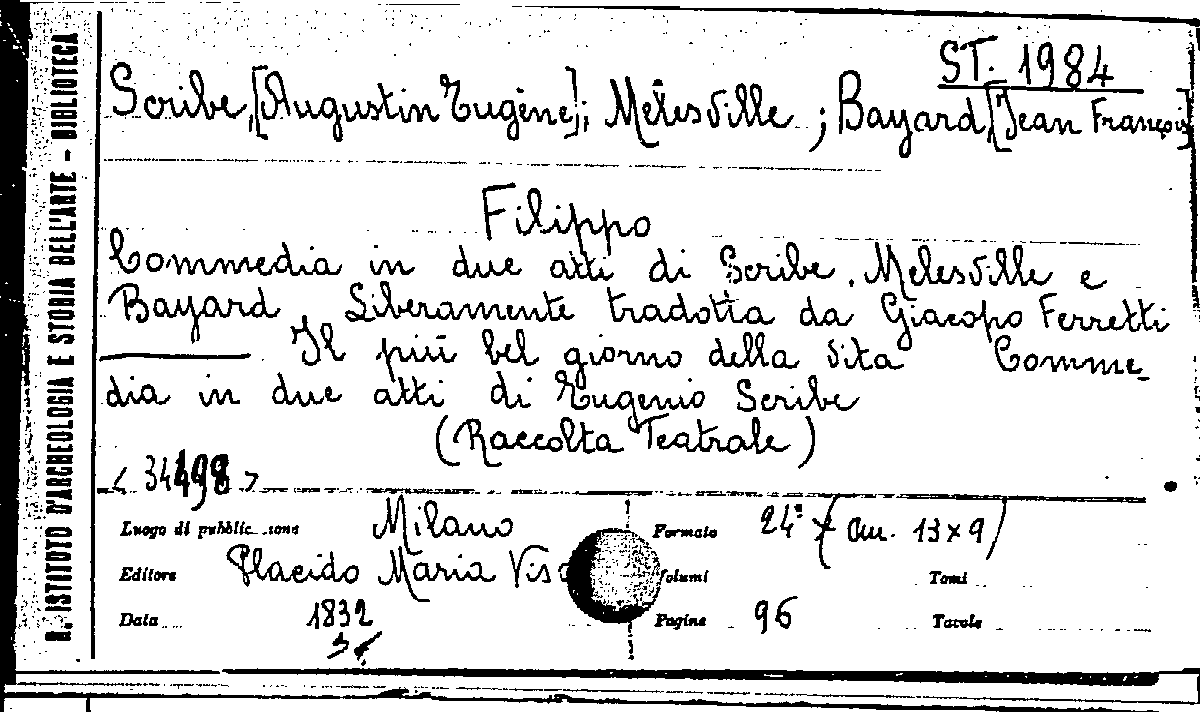 R. ISTITUTO D'ARCHEOLOGIA E STORIA DELL'ARTE - BIBLIOTECA
ST. 1984
Scribe, [Augustin Eugène]; Mélesville ; Bayard [Jean François]
Filippo
Commedia in due atti di Scribe, Melesville e
Bayard Liberamente tradotta da Giacopo Ferretti
Il più bel giorno della vita Comme-
dia in due atti di Eugenio Scribe
(Raccolta Teatrale)
< 34498 >
Luogo di pubblic...ione Milano
Formato 24° (cm. 13x9)
Editore Placido Maria Vis
Volumi Tomi
Data 1832
Pagine 96 Tavole